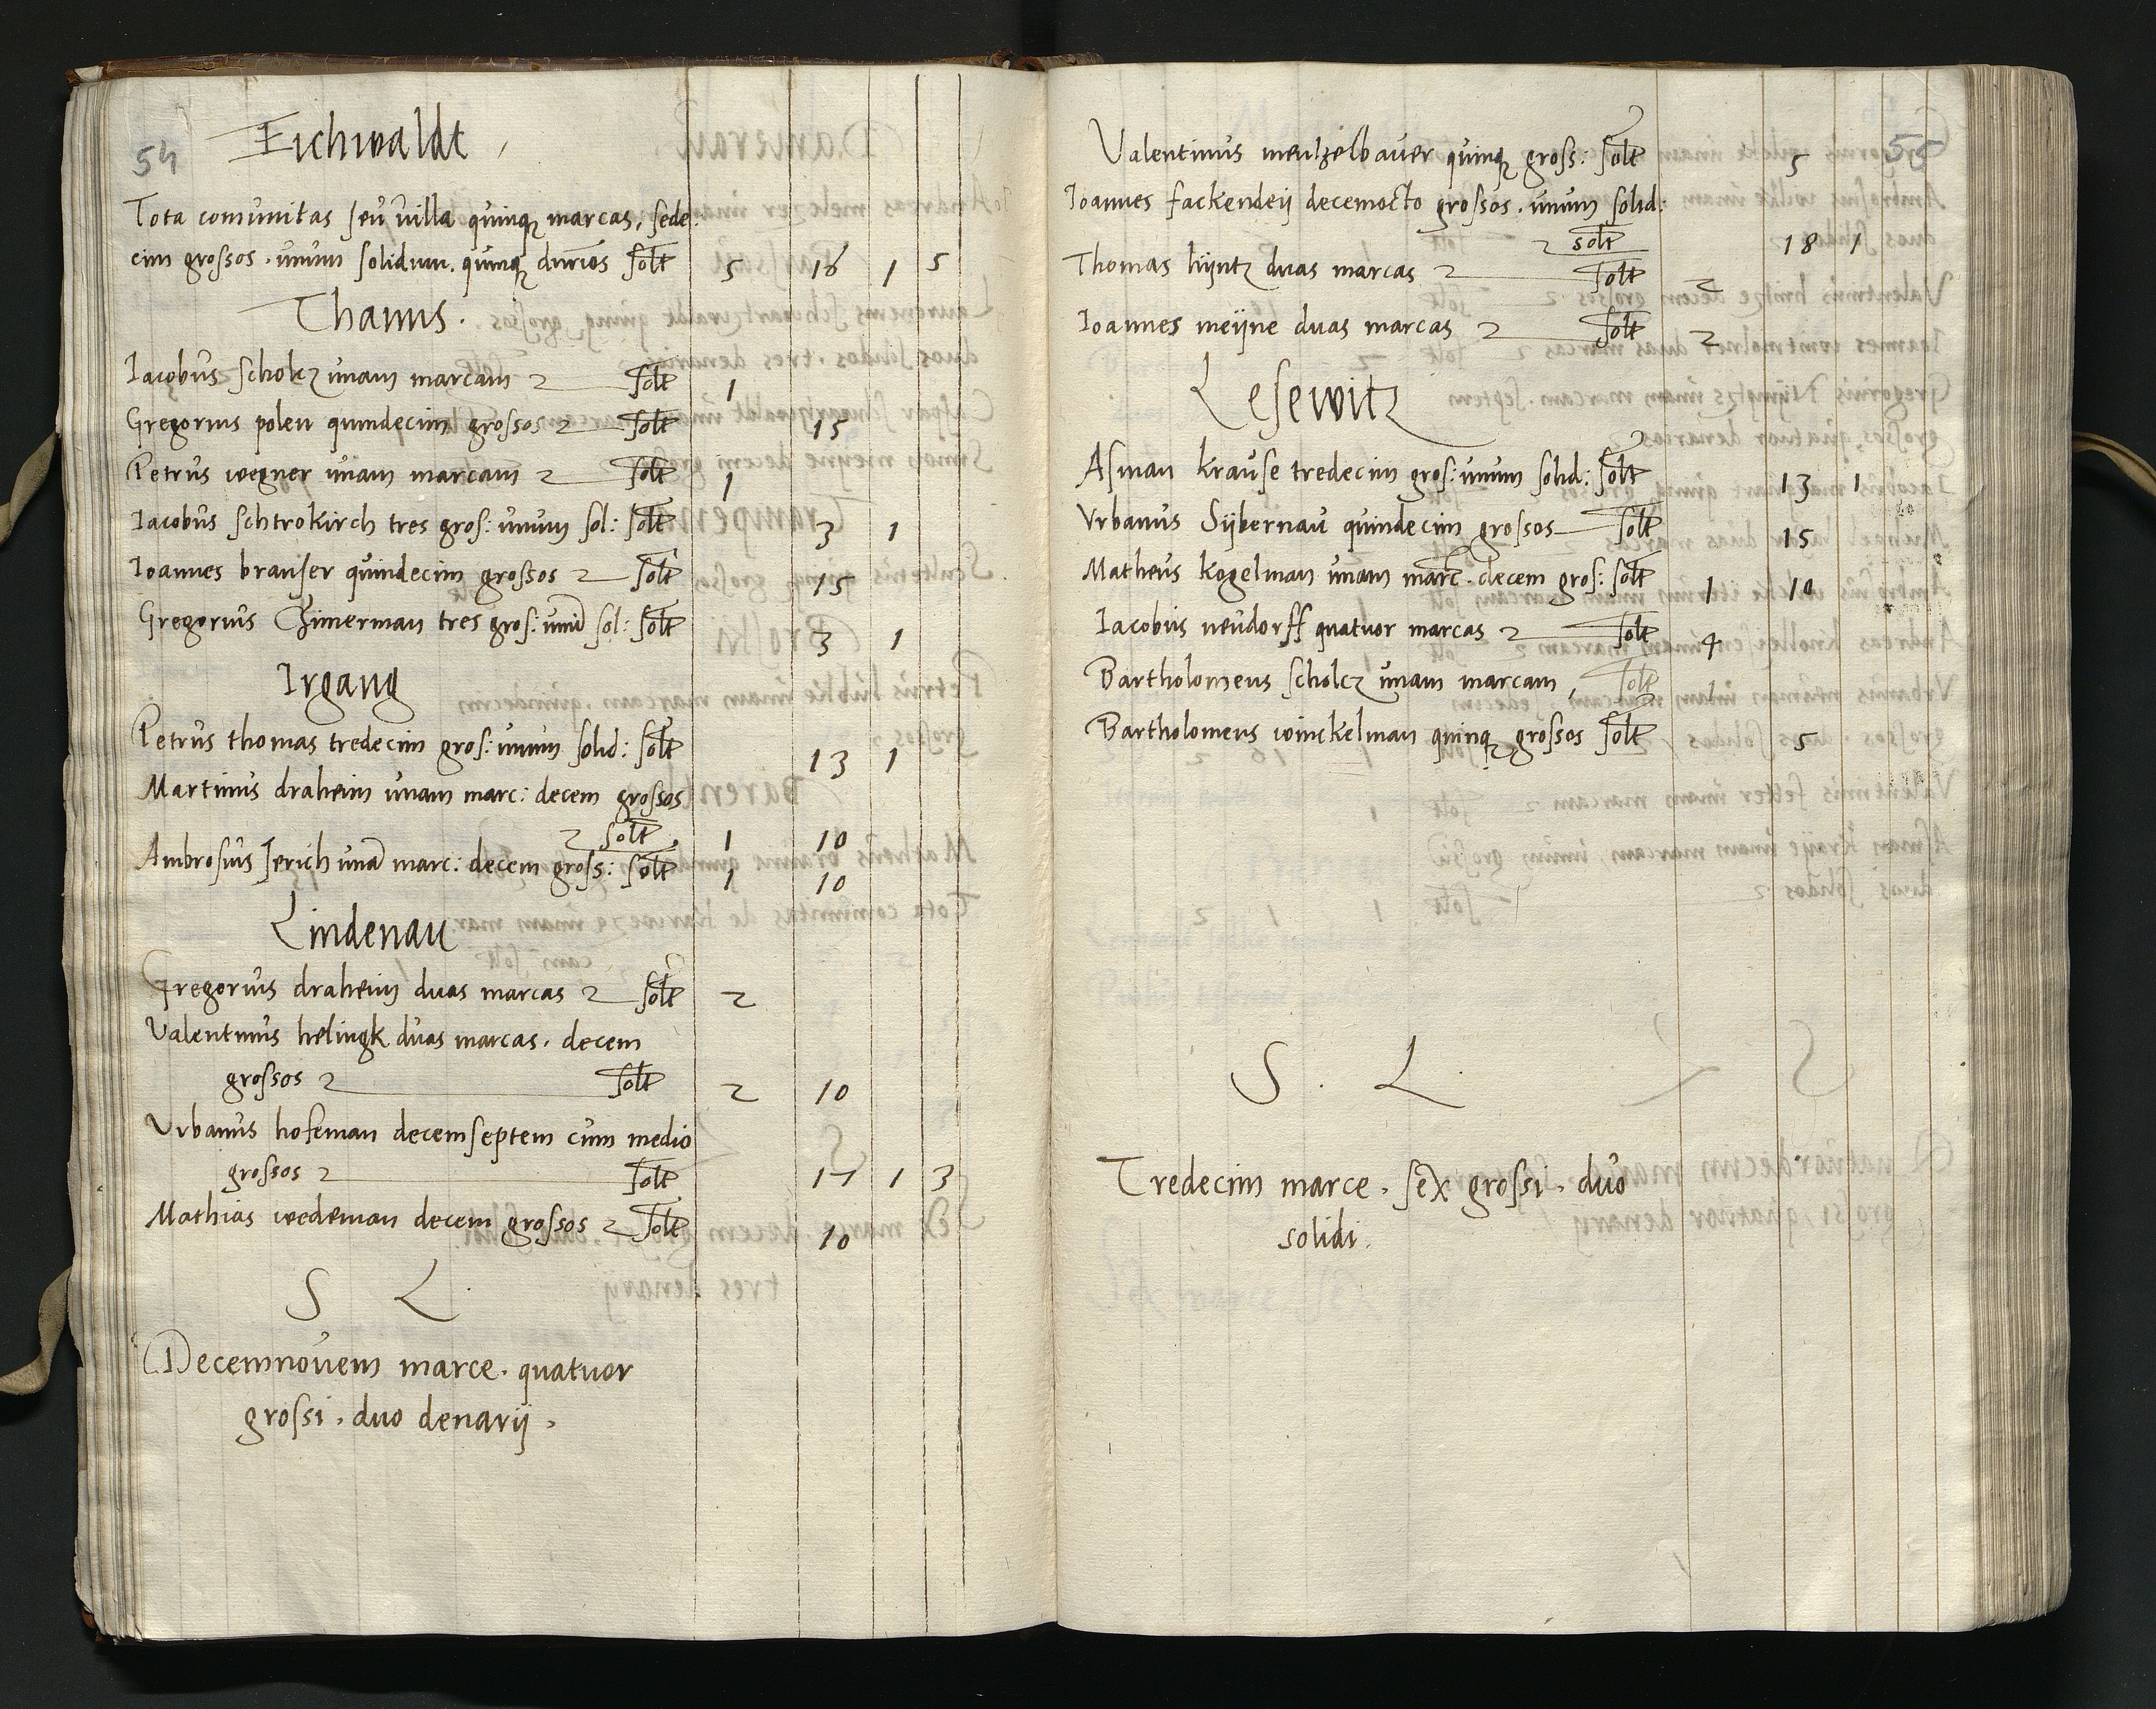 54
Eichwaldt
Tota comunitas seu villa quinqz marcas, sede:
cim grossos. unum solidum. quinqz dnrios solt 5 16 1 5
Thanns.
Iacobus scholcz unam marcam solt 1
Gregorius polen quindecim grossos solt 15
Petrus wegner unam marcam solt 1
Iacobus schtrokirch tres gros: unum sol: solt 3 1
Ioannes brauser quindecim grossos solt 15
Gregorius Czimerman tres gros: unu sol: solt 3 1
Irgang
Petrus thomas tredecim gros: unum solid: solt 13 1
Martinus draheim unam marc: decem grossos
solt 1 10
Ambrosius Jerich una marc: decem gross: solt 1 10
Lindenau
Gregorius draheim duas marcas solt 2
Valentinus helingk duas marcas. decem
grossos solt 2 10
Urbanus hofeman decemseptem cum medio
grossos solt 17 1 3
Mathias wedeman decem grossos solt 10
S L
Decemnovem marce. quatuor
grossi. duo denarij.
55
Valentinus mentzelbauer quinqz gross: solt 5
Ioannes fackendeij decemocto grossos. unum solid:
solt 18 1
Thomas hijntz duas marcas solt 2
Ioannes meijne duas marcas solt 2
Lesewitz
Asman krause tredecim gros: unum solid: solt 13 1
Vrbanus Sijbernau quindecim grossos solt 15
Matheus kogelman unam marc. decem gros: solt 1 10
Iacobus neudorff quatuor marcas solt 4
Bartholomeus scholcz unam marcam, solt 1
Bartholomeus winckelman quinqz grossos solt 5
S. L.
Tredecim marce. sex grossi. duo
solidi.